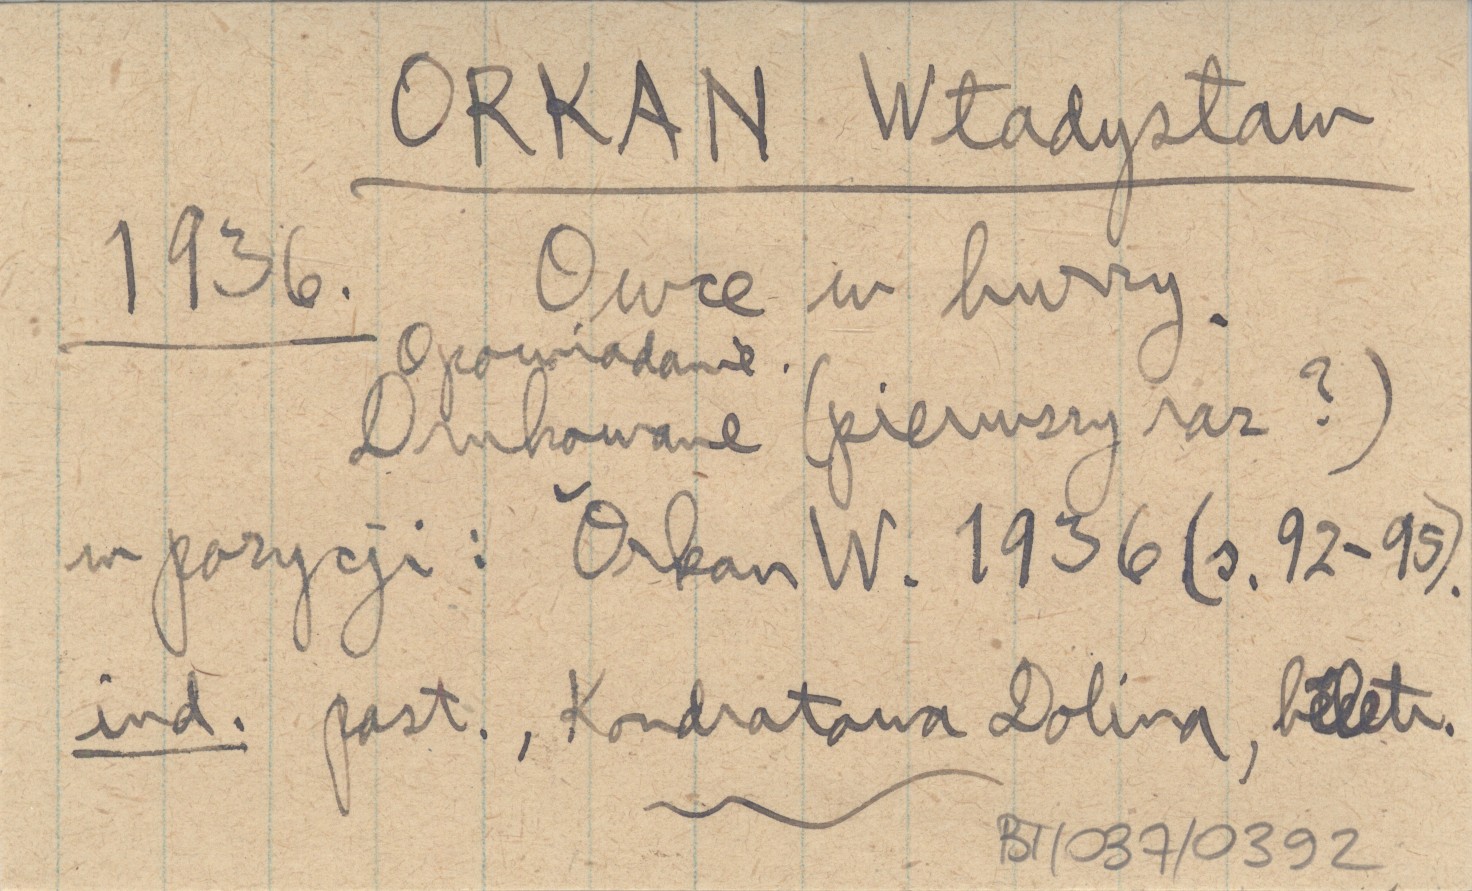 ORKAN Władysław
1936. Owce w burzy.
Opowiadanie.
Drukowane (pierwszy raz?)
w pozycji: Orkan W. 1936 (s. 92-95).
ind. past., Kondratowa Dolina, beletr.
BT/037/0392